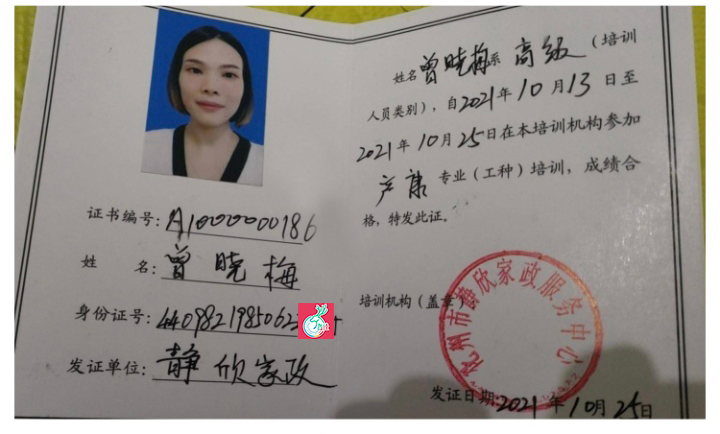 证书编号: A1000000186
姓 名: 曾晓梅
身份证号: 4409821985062
发证单位: 静欣家政
姓名曾晓梅系高级(培训
人员类别),自2021年10月13日至
2021年10月25日在本培训机构参加
产康专业(工种)培训,成绩合
格,特发此证。
培训机构(盖章)
州市静欣家政服务中心
发证日期:2021年10月25日